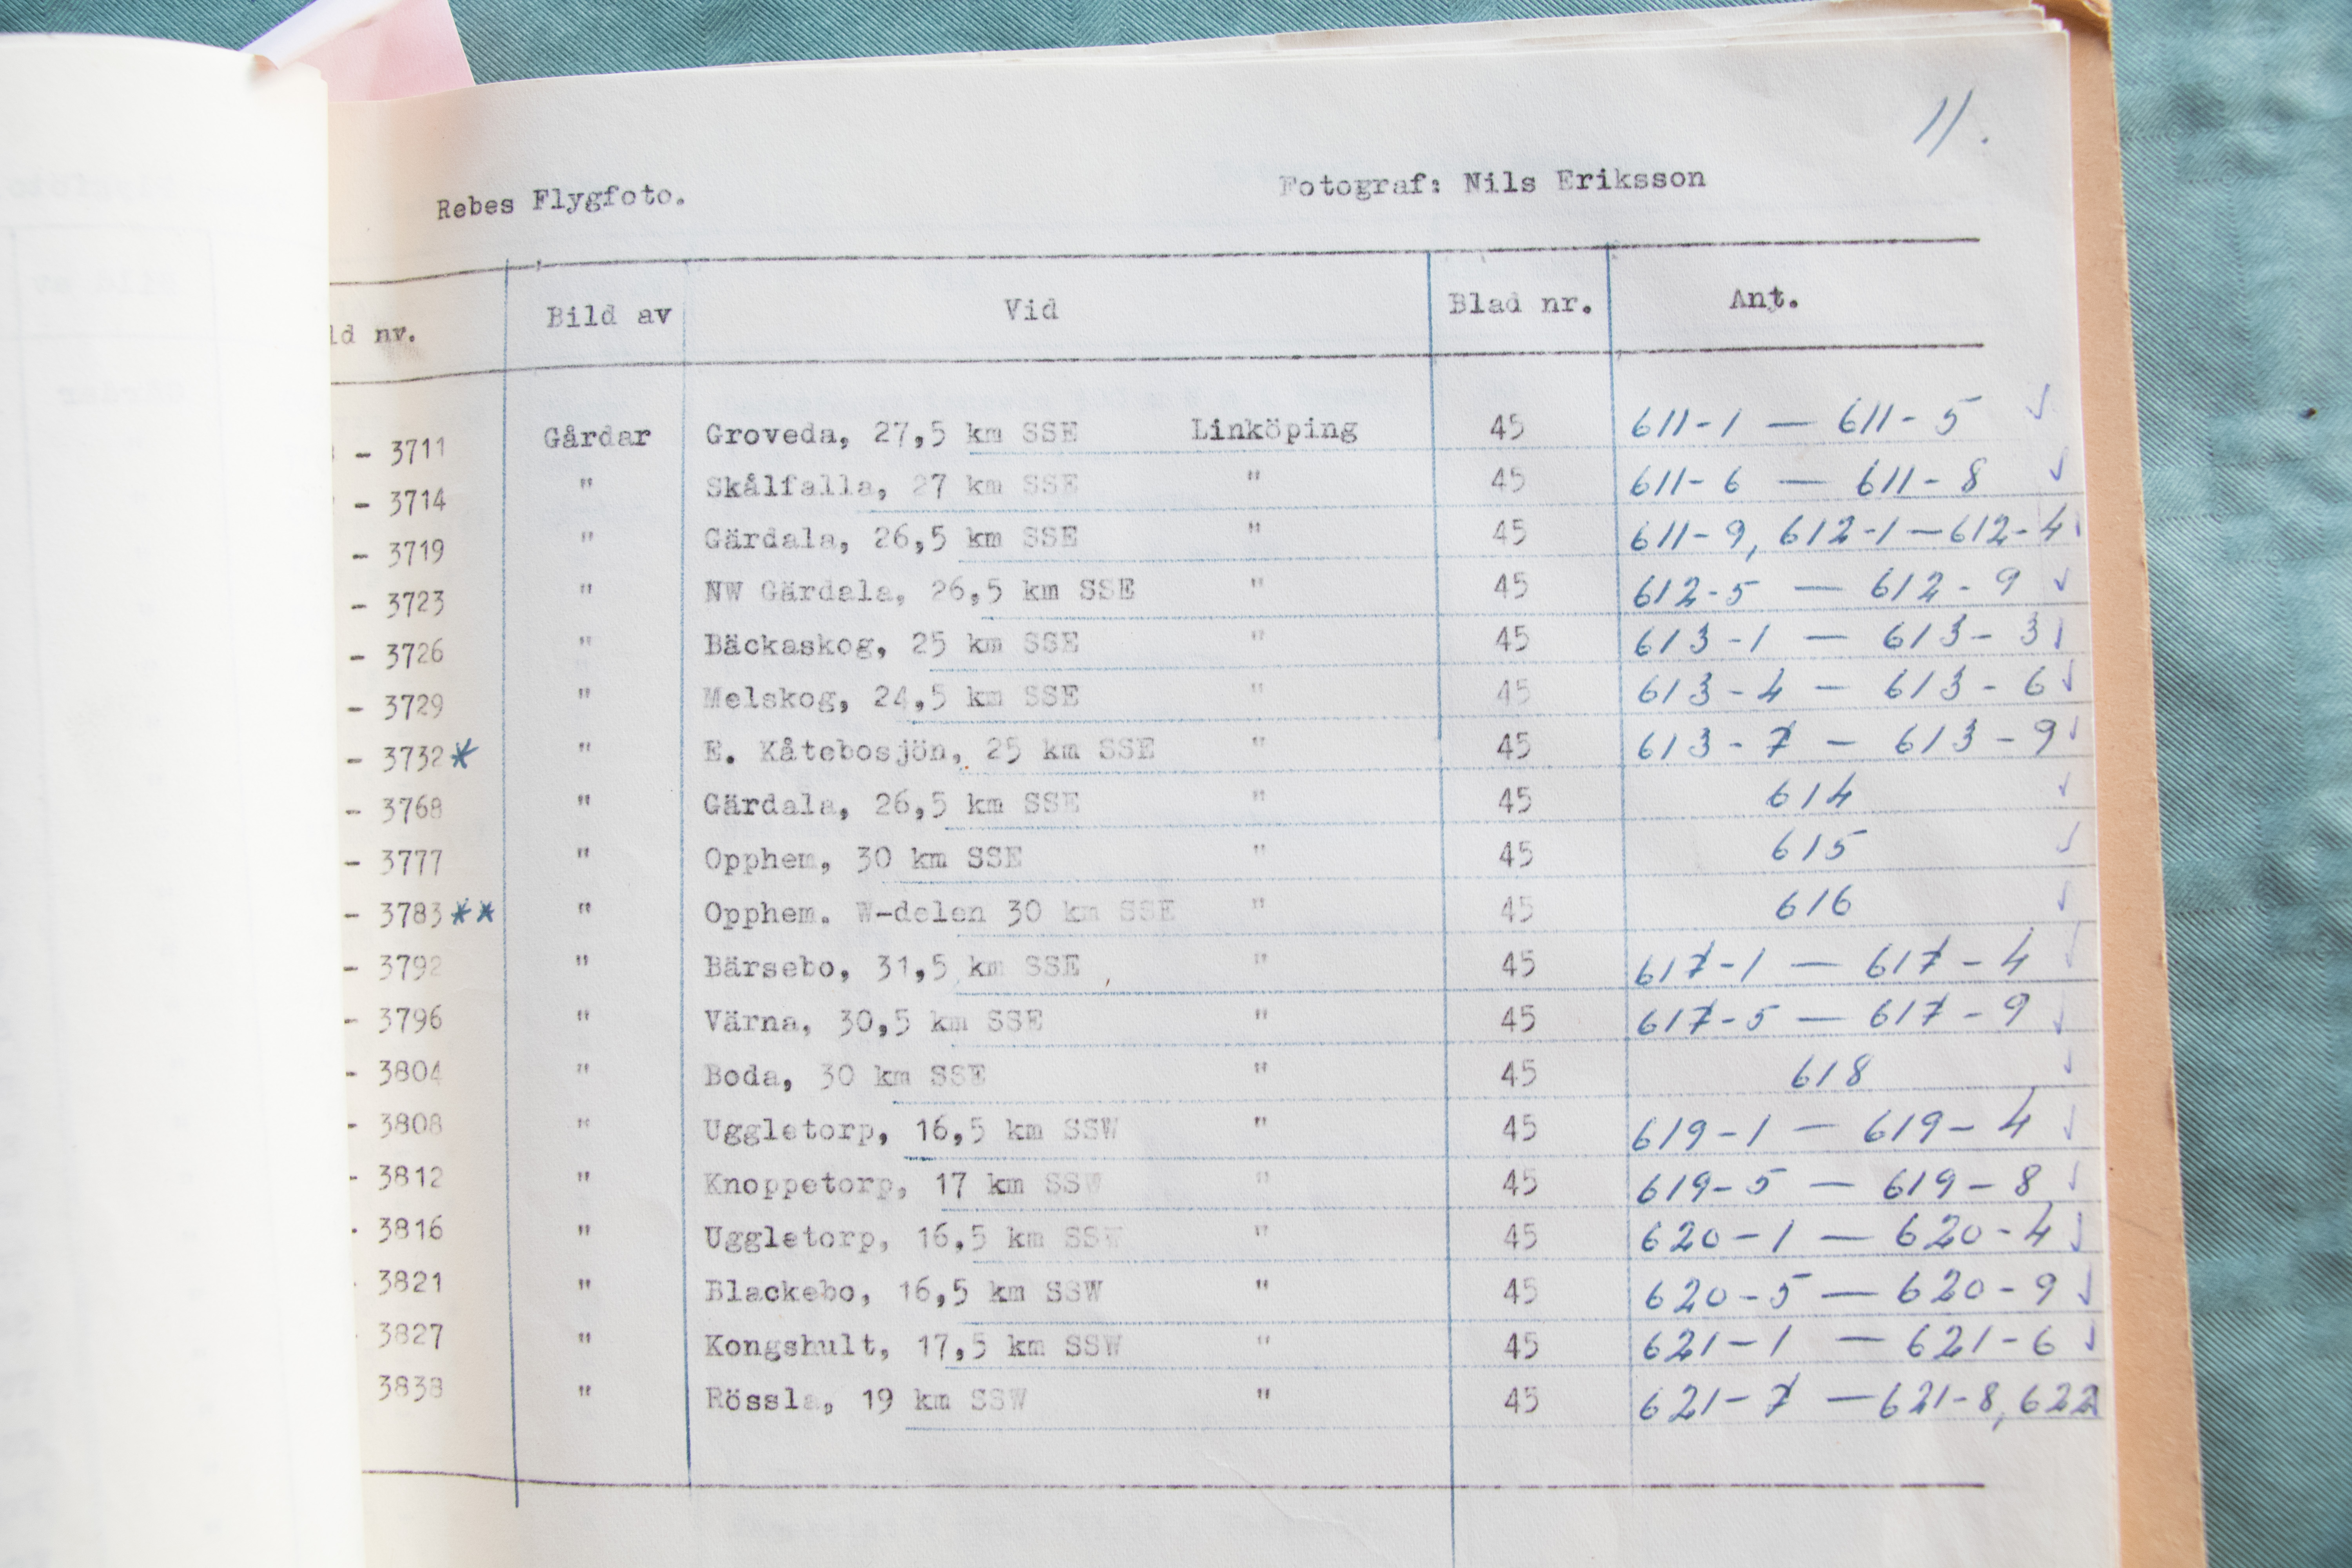 11.
Rebes Flygfoto. Fotograf: Nils Eriksson
ld nr. Bild av Vid Blad nr. Ant.
- 3711 Gårdar Groveda, 27,5 km SSE Linköping 45 611-1 — 611-5 ✓
- 3714 " Skålfalla, 27 km SSE " 45 611-6 — 611-8 ✓
- 3719 " Gärdala, 26,5 km SSE " 45 611-9, 612-1—612-4
- 3723 " NW Gärdala, 26,5 km SSE " 45 612-5 — 612-9 ✓
- 3726 " Bäckaskog, 25 km SSE " 45 613-1 — 613-3 ✓
- 3729 " Melskog, 24,5 km SSE " 45 613-4 — 613-6 ✓
- 3732* " E. Kåtebosjön, 25 km SSE " 45 613-7 — 613-9 ✓
- 3768 " Gärdala, 26,5 km SSE " 45 614 ✓
- 3777 " Opphem, 30 km SSE " 45 615 ✓
- 3783** " Opphem. W-delen 30 km SSE " 45 616 ✓
- 3792 " Bärsebo, 31,5 km SSE " 45 617-1 — 617-4 ✓
- 3796 " Värna, 30,5 km SSE " 45 617-5 — 617-9 ✓
- 3804 " Boda, 30 km SSE " 45 618 ✓
- 3808 " Uggletorp, 16,5 km SSW " 45 619-1 — 619-4 ✓
- 3812 " Knoppetorp, 17 km SSW " 45 619-5 — 619-8 ✓
- 3816 " Uggletorp, 16,5 km SSW " 45 620-1 — 620-4 ✓
- 3821 " Blackebo, 16,5 km SSW " 45 620-5 — 620-9 ✓
- 3827 " Kongshult, 17,5 km SSW " 45 621-1 — 621-6 ✓
3838 " Rössla, 19 km SSW " 45 621-7 — 621-8, 622